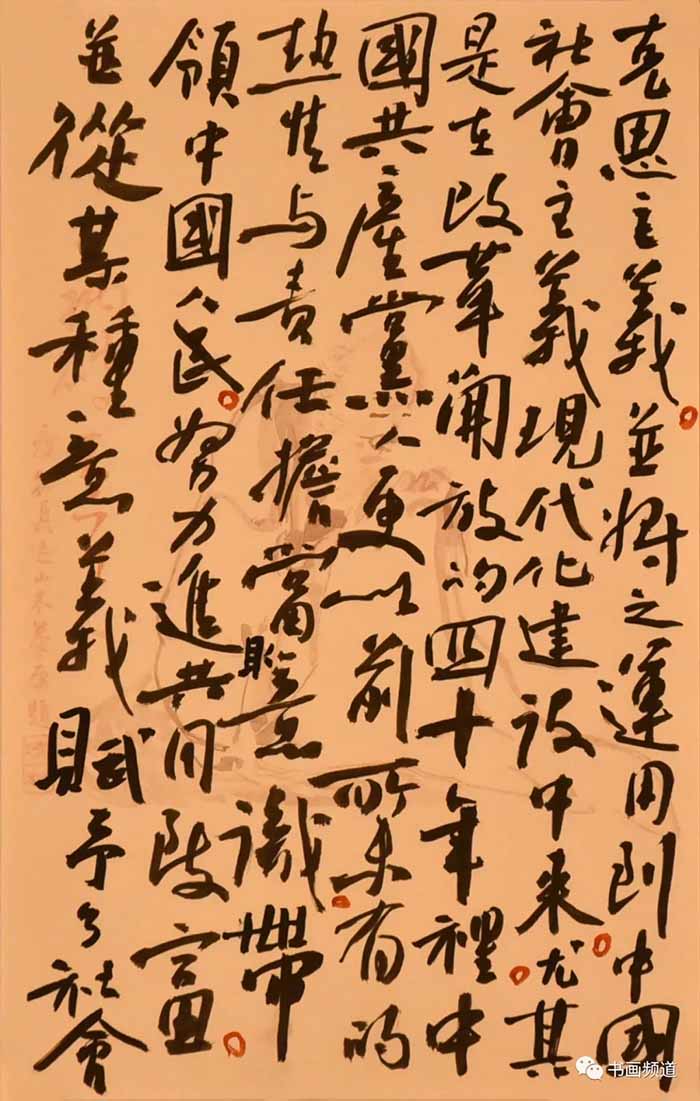 克思主義。並將之運用到中國
社會主義現代化建設中來。尤其
是在改革開放的四十年裡。中
國共產黨人更以前所未有的
熱情与責任擔當意識。帶
領中國人民。努力進共同致富。
並從某種意義賦予了社會
书画频道